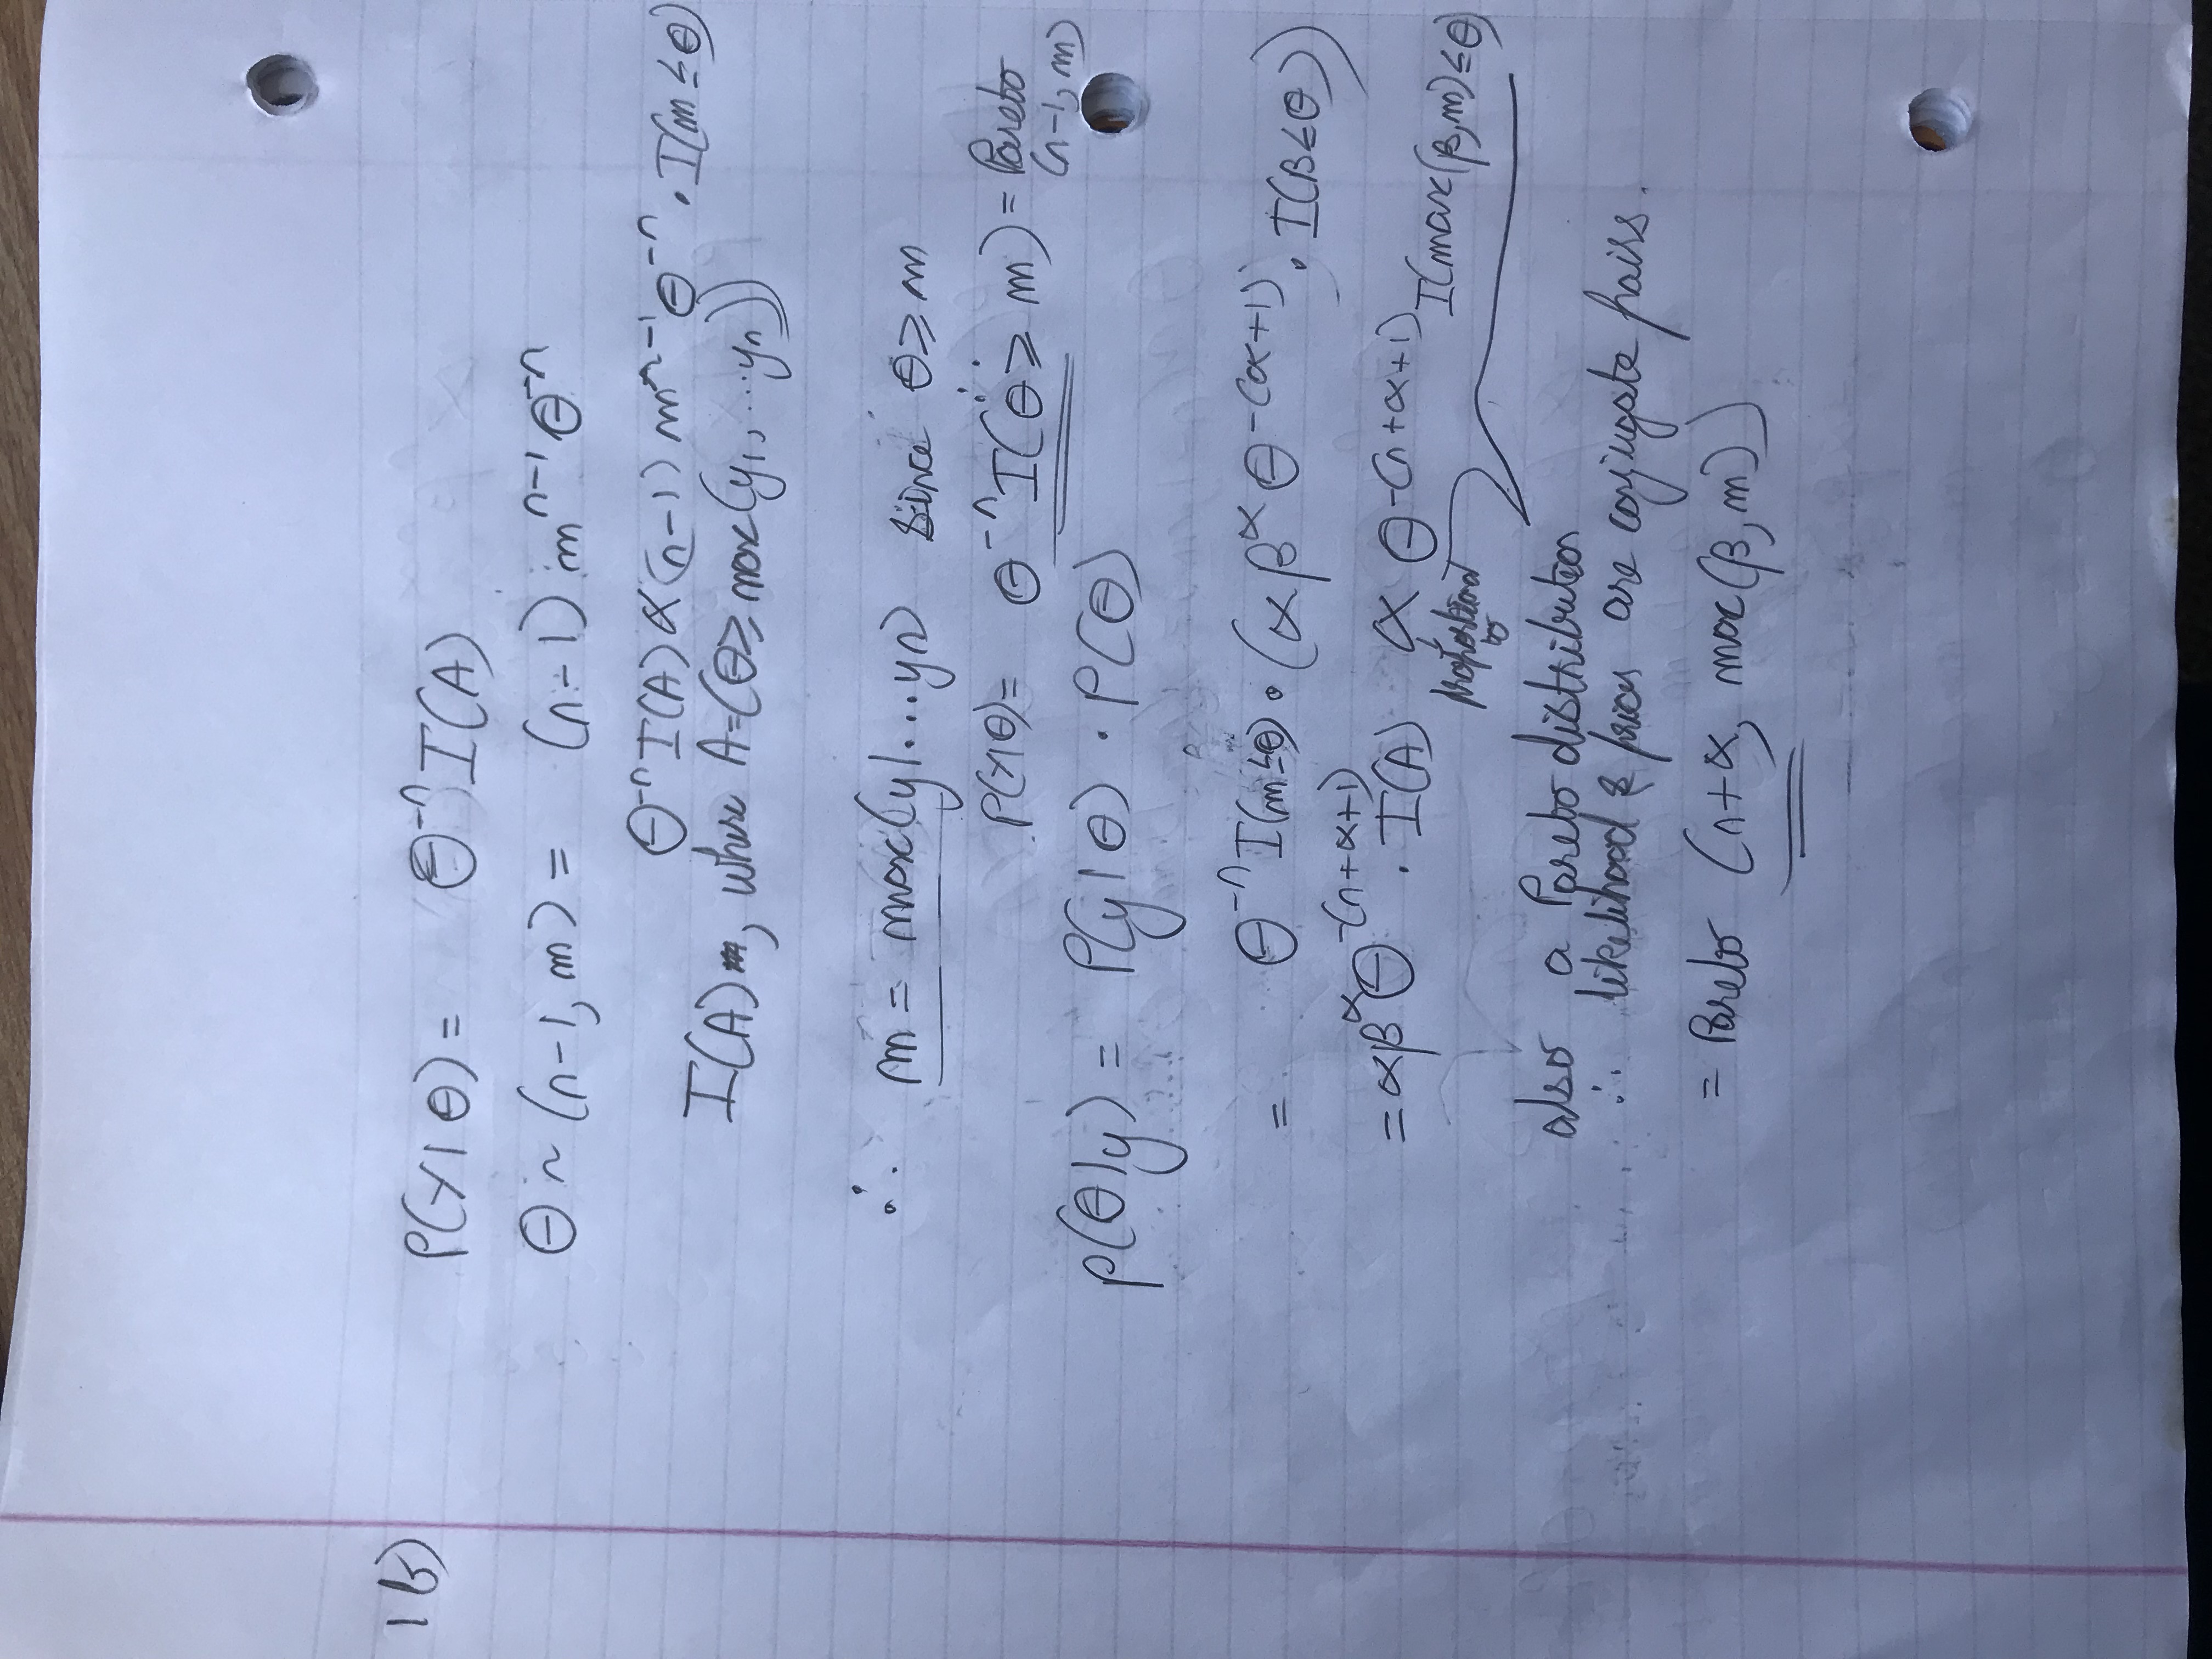 1b)
P(Y|θ) = θ⁻ⁿ I(A)
θ ~ (n-1, m) = (n-1) mⁿ⁻¹ θ⁻ⁿ
θ⁻ⁿ I(A) ∝ (n-1) mⁿ⁻¹ θ⁻ⁿ . I(m ≤ θ)
I(A), where A = (θ ≥ max(y₁, ...yₙ))
∴ m = max(y1...yn) since θ ≥ m
P(Y|θ) = θ⁻ⁿ I(θ ≥ m) = Pareto
(n-1, m)
p(θ|y) = P(y|θ) . P(θ)
= θ⁻ⁿ I(m ≤ θ) . (α β^α θ^-(α+1) . I(β ≤ θ))
= αβ^α θ^-(n+α+1) . I(A) ∝ θ^-(n+α+1) I(max(β,m) ≤ θ)
proportional
to
also a Pareto distribution
∴ likelihood & prior are conjugate pairs.
= Pareto (n+α, max(β,m))